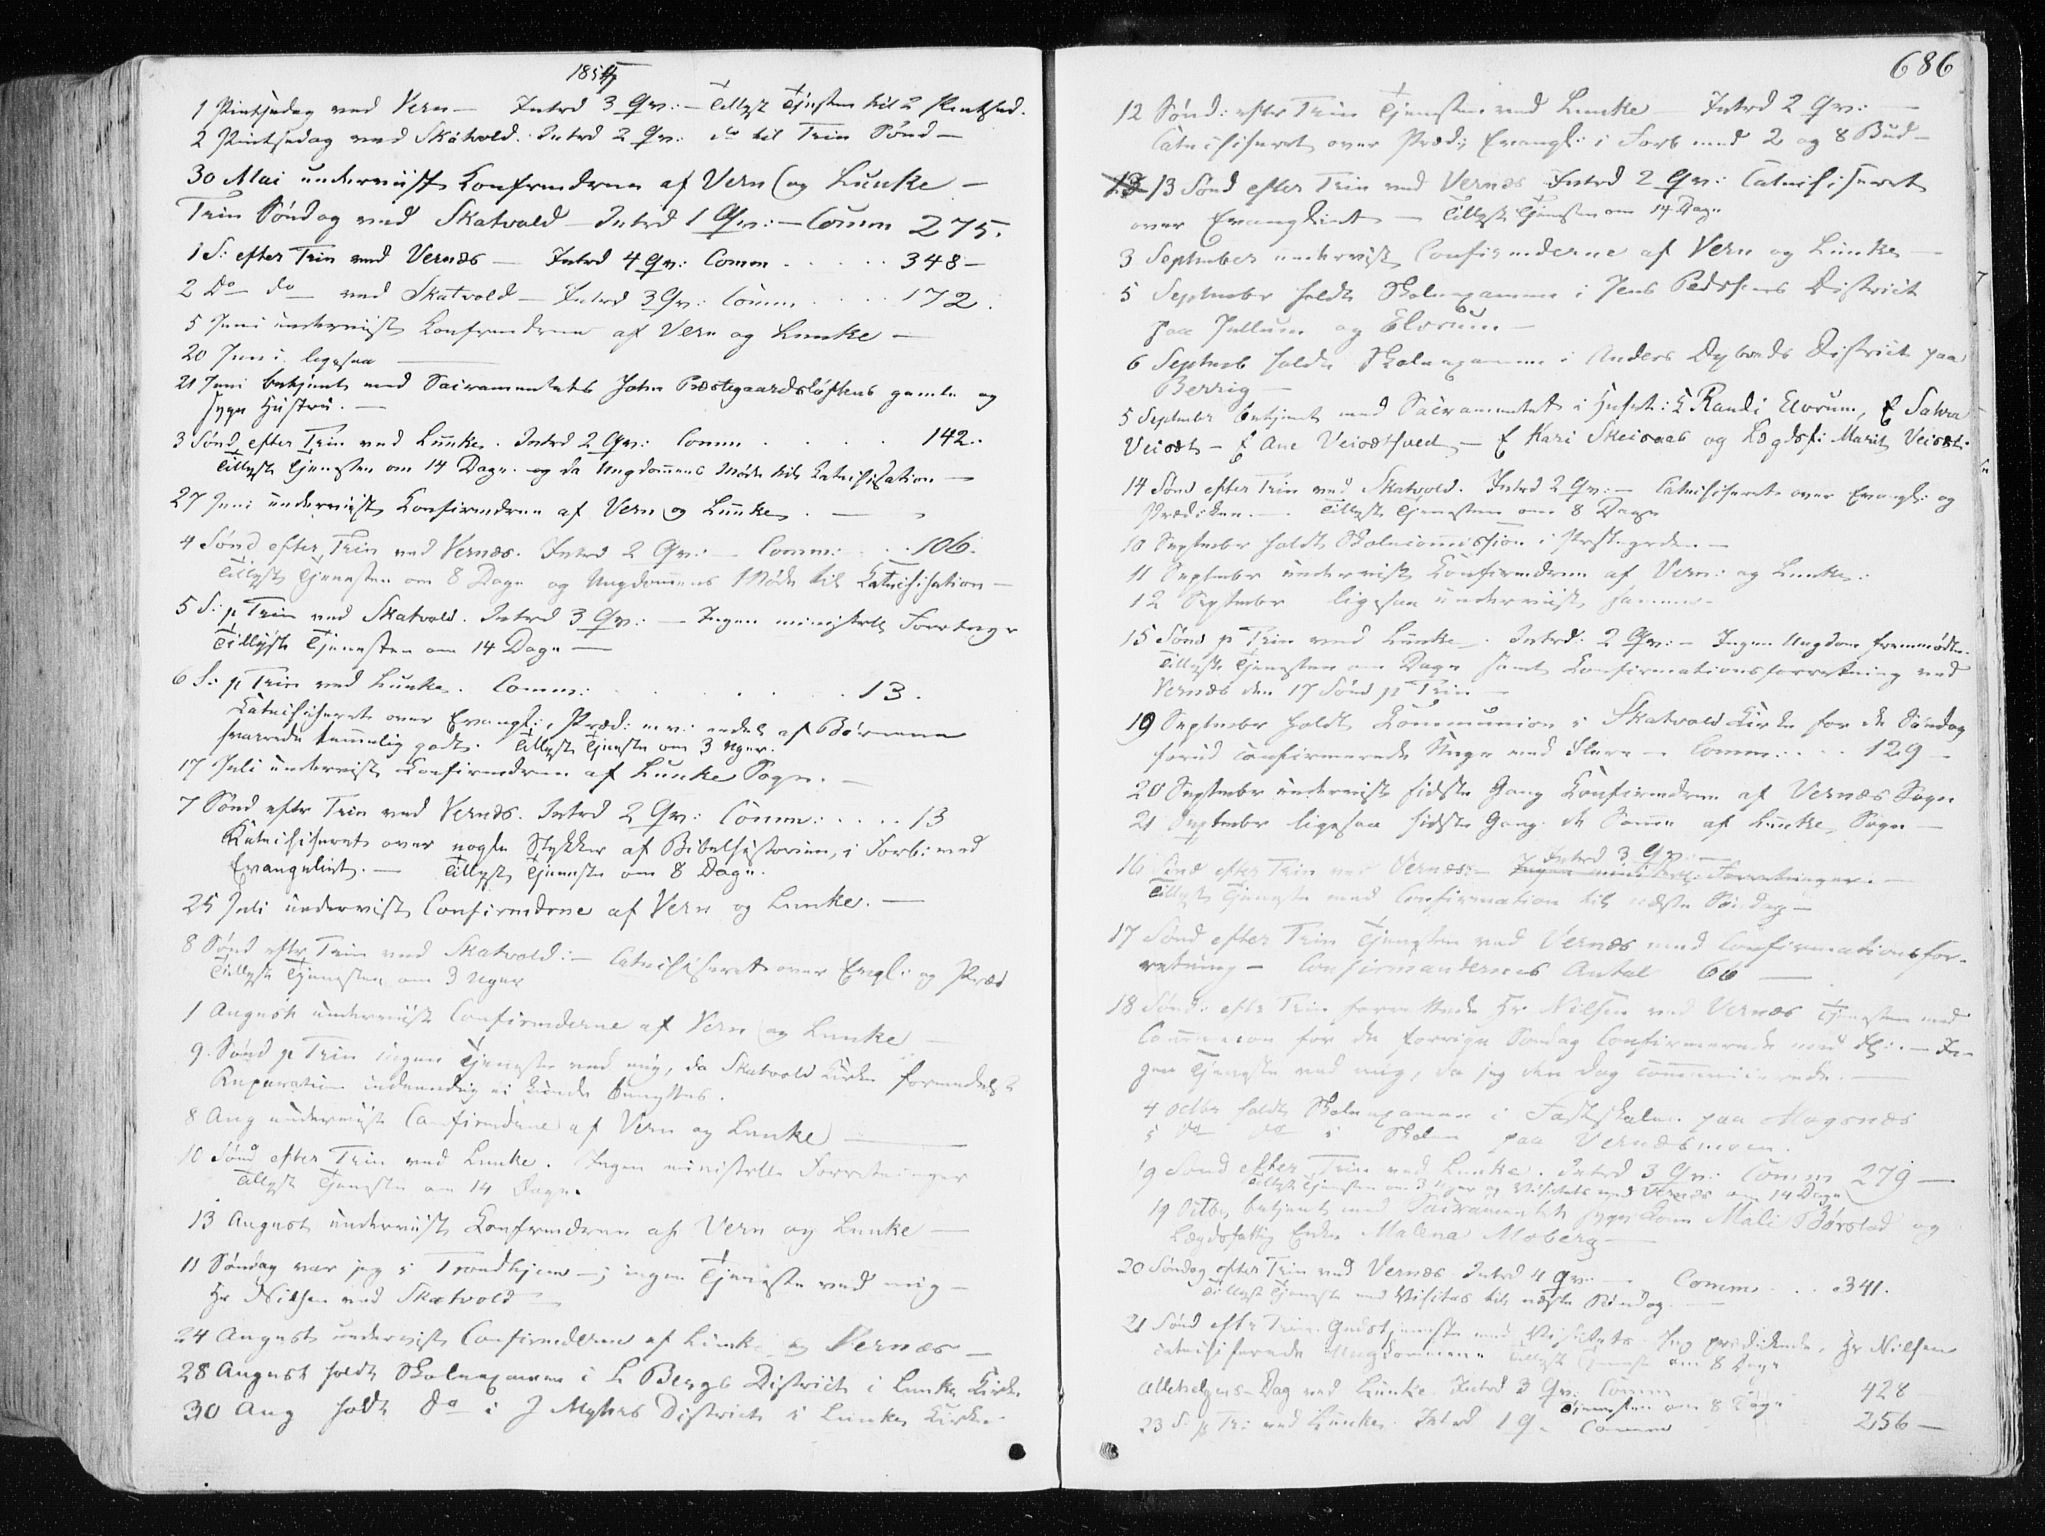 1854
1 Pintsedag ved Vern — Introd 3 Qv: — Tillyst Tjenesten til 2 Pintsed.
2 Pintsedag ved Skatvold. Introd 2 Qv: do til Trin Sønd —
30 Mai underviist Confirmdrene af Vern og Lunke —
Trin Søndag ved Skatvold — Introd 1 Qv: — Comm 275.
1 S: efter Trin ved Vernæs — Introd 4 Qv: Comm . . . . . 348 —
2 Do do ved Skatvold — Introd 3 Qv: Comm . . . . 172.
5 Juni underviist Confirmdrene af Vern og Lunke —
20 Juni ligesaa
21 Juni betjent med Sacramentet John Præstegaardsløkkens gamle og
syge Hustru. —
3 Sønd efter Trin ved Lunke. Introd 2 Qv: Comm . . . . 142.
Tillyst Tjenesten om 14 Dage og da Ungdommens Møde til Catechisation —
27 Juni underviist Confirmdrene af Vern og Lunke. —
4 Sønd efter Trin ved Vernæs. Introd 2 Qv: — Comm: . . . 106.
Tillyst Tjenesten om 8 Dage og Ungdommens Møde til Catechisation —
5 S: p Trin ved Skatvold. Introd 3 Qv: — Ingen ministrelle Forretninger
Tillyst Tjenesten om 14 Dage —
6 S: p Trin ved Lunke. Comm: . . . . . . 13.
Catechiseret over Evangl:, Præd: endel af Børnene
svarede temmelig godt. Tillyst Tjeneste om 3 Uger.
17 Juli underviist Confirmdrene af Lunke Sogn. —
7 Sønd eftr Trin ved Vernæs. Introd 2 Qv: Comm: . . . . 13
Catechiseret over nogle Stykker af Bibelhistorien, i Forb: med
Evangeliet. — Tillyst Tjeneste om 8 Dage.
25 Juli underviist Confirmdrne af Vern og Lunke. —
8 Sønd eftr Trin ved Skatvold: — Catechiseret over Evgl: og Præd
Tillyst Tjenesten om 3 Uger
1 August underviist Confirmderne af Vern og Lunke —
9. Sønd p Trin ingen Tjeneste ved mig, da Skatvold Kirke formedelst
Reparation indvendig ei kunde benyttes.
8 Aug underviist Confirmdrne af Vern og Lunke —
10 Sønd efter Trin ved Lunke. Ingen ministrelle Forretninger
Tillyst Tjeneste om 14 Dage.
13 August underviist Confirmdrene af Vern og Lunke —
11 Søndag var jeg i Trondhjem —; ingen Tjeneste ved mig —
Hr Nilsen ved Skatvold —
24 August underviist Confirmderne af Lunke og Vernæs —
28 August holdt Skolexamen i L Bergs District i Lunke Kirke
30 Aug holdt do i J Myhrs District i Lunke Kirke.
686
12 Sønd: efter Trin Tjenesten ved Lunke — Introd 2 Qv: —
Catechiseret over Præd:, Evangl: i Forb med 2 og 8 Bud —
13 Sønd efter Trin ved Vernæs Introd 2 Qv: Catechiseret
over Evangeliet — Tillyst Tjenesten om 14 Dage
3 September underviist Confirmderne af Vern og Lunke —
5 September holdt Skolexamen i Jens Pedersens District
paa Jullum og Elvrum —
6 Septemb holdt Skolexamen i Anders Dybvads District paa
Berrig —
5 Septembr betjent med Sacramentet i Huset: E Randi Elvrum, E Sahra
Veisæt — E Ane Veisæthved — E Kari Skeisaas og Lægdsl: Marit Veisæt.
14 Sønd efter Trin ved Skatvold. Introd 2 Qv: — Catechiseret over Evangl: og
Prædiken. — Tillyst Tjenesten om 8 Dage
10 Septembr holdt Skolecommission i Præstegrden —
11 Septembr underviist Confirmdrene af Vern: og Lunke:
12 Septembr ligesaa underviist samme —
15 Sønd p Trin ved Lunke —. Introd. 2 Qv: — Ingen Ungdom fremmødte.
Tillyst Tjenesten om Dage samt Confirmationsforretning ved
Vernæs den 17 Sønd p Trin —
19 Septembr holdt Communion i Skatvold Kirke for de Søndag
forud confirmerede Unge med flere — Comm: . . . 129 —
20 Septembr underviist sidste Gang Confirmdrene af Vernæs Sogn
21 Septembr ligesaa sidste Gang de Samme af Lunke Sogn —
16 Sønd efter Trin ved Vernæs: — Introd 3 Qv: —
Ingen minist: Forretninger. —
Tillyst Tjeneste med Confirmation til næste Søndag —
17 Sønd efter Trin Tjenesten ved Vernæs med Confirmationsfor-
retning — Confirmandernes Antal 66 —
18 Sønd: eftr Trin forrettede Hr Nilsen ved Vernæs Tjenesten med
Communion for de forrige Søndag Confirmerede med fl: — In-
gen Tjeneste ved mig, da jeg den Dag communicerede. —
4 Octbr holdt Skolexamen i Fastskolen paa Mogsnæs
5 do do i Skolen paa Vernæsmoen.
19 Sønd efter Trin ved Lunke. Introd 3 Qv: Comm 279 —
Tillyst Tjenesten om 3 Uger og Visitats ved Vernæs om 14 Dage
19 Octbr betjent med Sacramentet syge Kone Mali Børstad og
Lægdsfattig Enke Malena Moberg —
20 Søndag efter Trin ved Vernæs Introd 4 Qv: — Comm . . . 341.
Tillyst Tjeneste med Visitats til næste Søndag. —
21 Sønd eftr Trin Gudstjeneste med Visitats. Jeg prædikede, Hr Nilsen
catechiserede Ungdommen. Tillyst Tjeneste om 8 Dage
Allehelgens-Dag ved Lunke Introd 3 Qv: Comm 428 —
Tjenesten om 8 Dage
23 S. p Tr: ved Lunke. Introd 1 Q. Comm 256 —